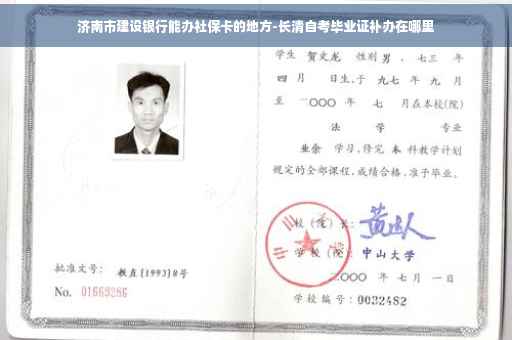 济南市建设银行能办社保卡的地方-长清自考毕业证补办在哪里
学生 贺文龙 性别 男 、七三 年
四 月 日生,于 九七 年 九 月
至 二〇〇〇 年 七 月在本校(院)
法 学 专业
业余 学习,修完 本 科教学计划
规定的全部课程,成绩合格,准予毕业。
校(院)长:
学 校(院): 中山大学
二〇〇〇 年 七 月 一 日
学校编号: 0032482
批准文号: 教直[1993]8号
No. 01669286